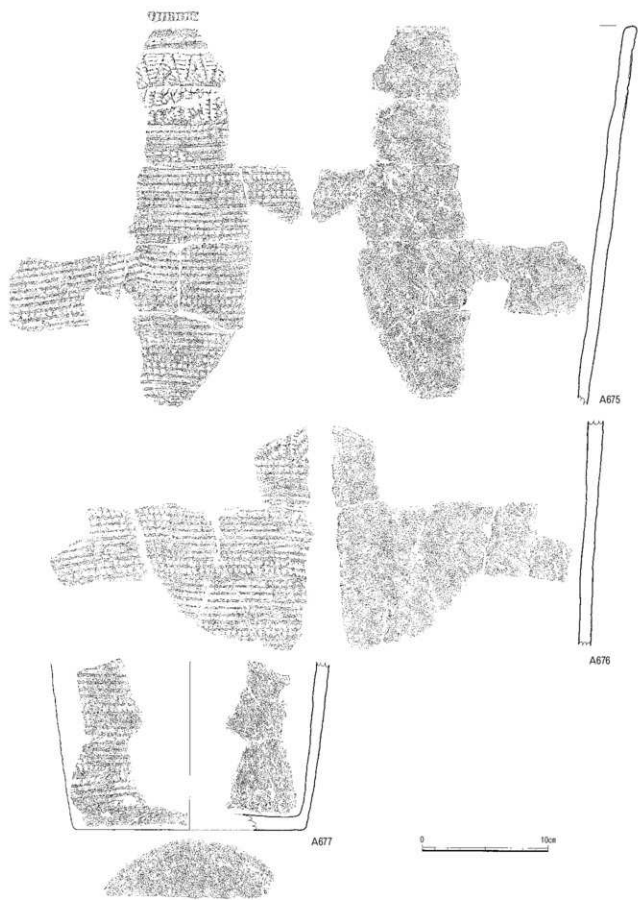 A675
A676
A677
0 10cm